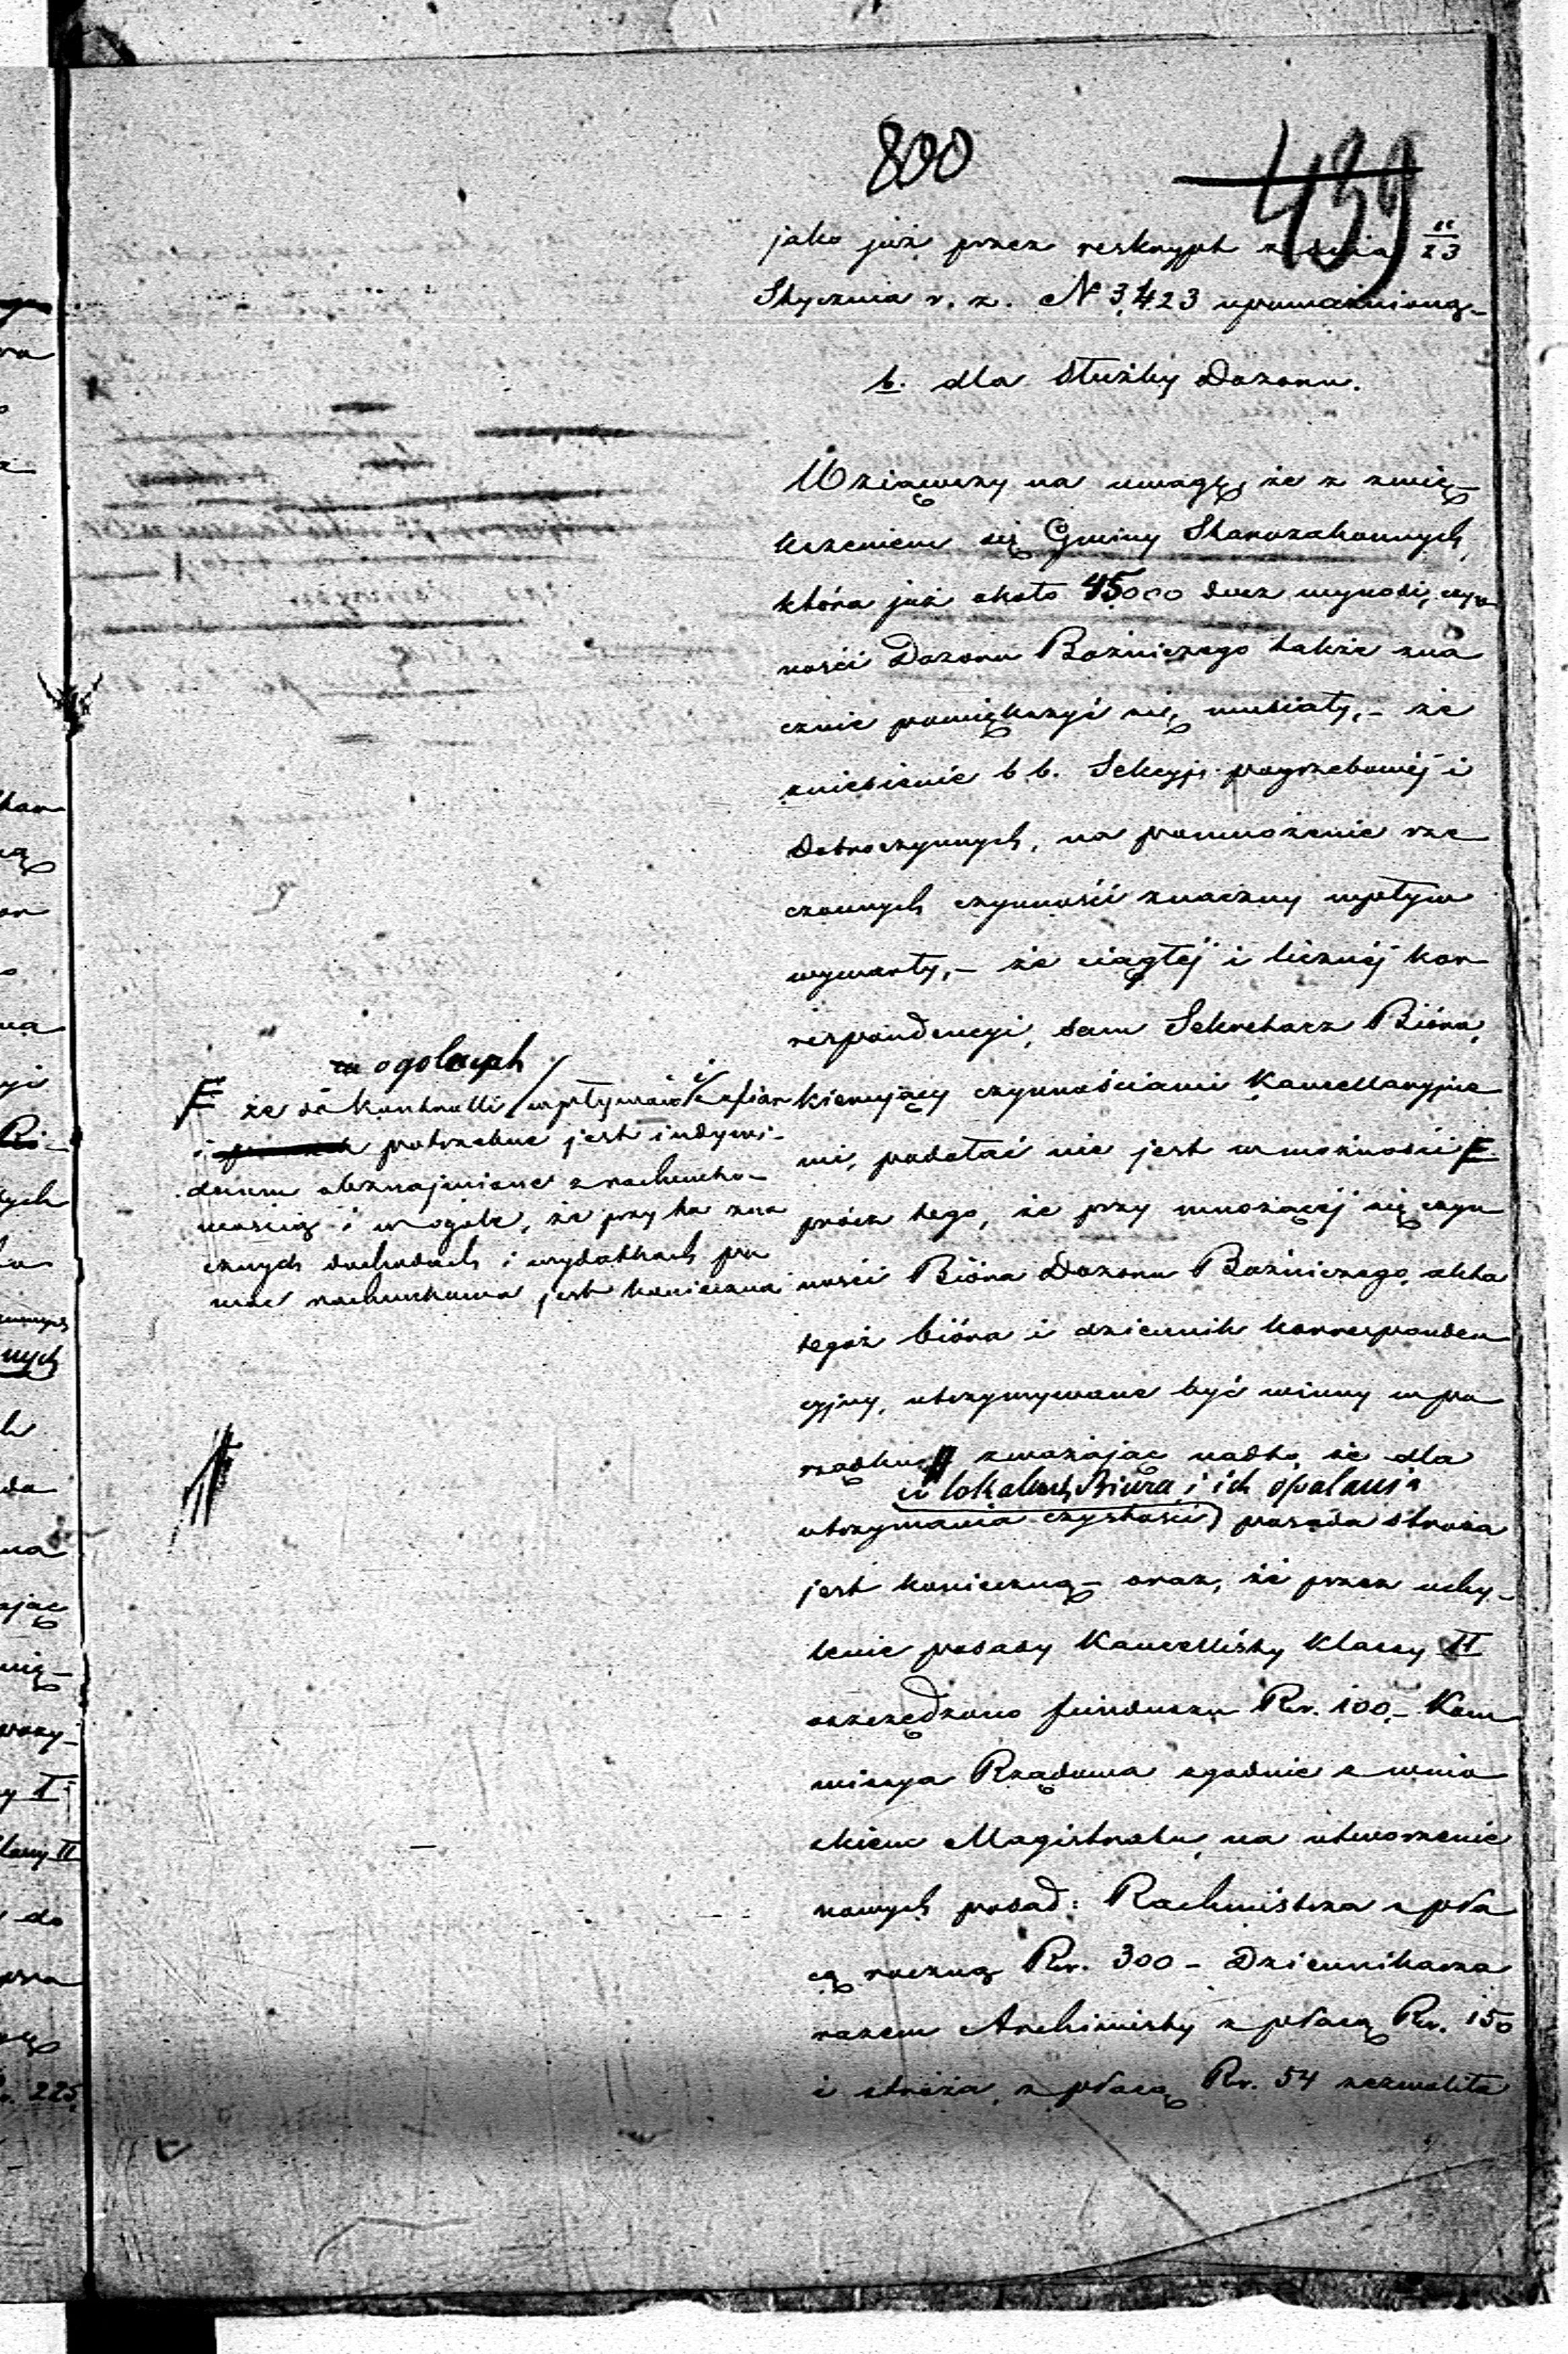 800
439
jako już przez reskrypt z dnia 11/23
Stycznia r. z. N 3,423 upoważnioną.
b. dla Służby Dozoru.
Wziąwszy na uwagę, że z zwię-
kszeniem się Gminy Starozakonnych,
która już około 45000 dusz wynosi, czyn
ności Dozoru Bożniczego także zna
cznie powiększyć się musiały, – że
zniesienie b b. Sekcyji pogrzebowéj i
Dobroczynnych, na pomnożenie rze
czonych czynności znaczny wpływ
wywarły, – że ciągłéj i licznéj kor-
respondencyi, sam Sekretarz Bióra,
kierujący czynnościami Kancellaryjne
mi, podołać nie jest w możności F
prócz tego, że przy mnożącéj się czyn
ności Bióra Dozoru Bożniczego, akta
tegoż bióra i dziennik korresponden
cyjny, utrzymywane być winny w po
rządku // zważając nadto, że dla
w lokalach Biura i ich opalania
utrzymania czystości posada stroża
jest konieczną – oraz, że przez uchy-
lenie posady Kancellisty klassy II
oszczędzono funduszu Rsr. 100, – Kom
missya Rządowa zgodnie z wnio
skiem Magistratu, na utworzenie
nowych posad: Rachmistrza z pła
cą roczną Rsr. 300 – Dziennikarza
razem Archiwisty z płacą Rsr. 150
i stróża, z płacą Rsr. 54 zezwoliła
w ogolnych
F że do kontrolli wpływów i ofiar
i potrzebne jest indywi-
duum obznajmione z rachunko-
wością i w ogóle, że przy tak zna
cznych dochodach i wydatkach po
moc rachunkowa jest konieczna
//